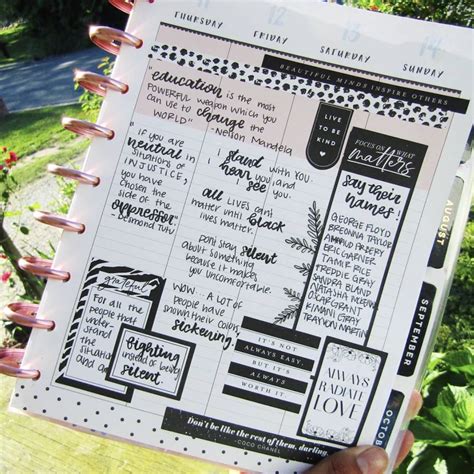 11
12
13
14
THURSDAY
FRIDAY
SATURDAY
SUNDAY
BEAUTIFUL MINDS INSPIRE OTHERS
"education is the most
POWERFUL weapon which you
can use to change the
WORLD" -Nelson Mandela
"IF you are
neutral in
situations of
INJUSTICE,
you have
chosen the
side of the
oppressor"
-Desmond Tutu
I stand
near you and
hear you,
see
all LIVES can't
matter until black
lives matter.
Don't stay silent
about something
because it makes
you uncomfortable.
WOW. A LOT OF
people have
shown their colors.
sickening.
LIVE
TO BE
KIND
FOCUS ON WHAT
matters
Say their
names!
GEORGE FLOYD
BREONNA TAYLOR
AHMAUD ARBERY
ERIC GARNER
TAMIR RICE
FREDDIE GRAY
SANDRA BLAND
NATASHA MCKENNA
OSCAR GRANT
KIMANI GRAY
TRAYVON MARTIN
grateful
For all the
people that
understand
the
situation
and
fighting
instead of being
silent
IT'S NOT
ALWAYS EASY, BUT
IT'S ALWAYS
WORTH IT.
ALWAYS
RADIATE
LOVE
Don't be like the rest of them, darling.
-COCO CHANEL
AUGUST
SEPTEMBER
OCTOBER